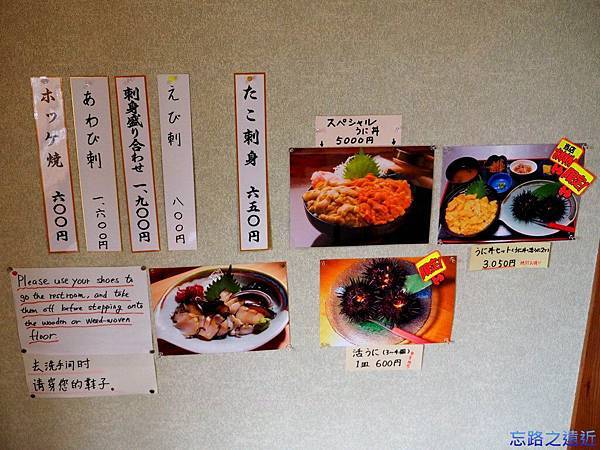 ホッケ焼 六〇〇円
あわび刺 一、六〇〇円
刺身盛り合わせ 一、九〇〇円
えび刺 八〇〇円
たこ刺身 六五〇円
スペシャル
うに丼
↓ 5000円 ↓
うに丼セット(うに丼・活うに2ケ)
3.050円
活うに(3~4個)
1皿 600円
Please use your shoes to
go the restroom, and take
them off before stepping onto
the wooden or weed-woven
floor
去洗手间时
请穿您的鞋子。
忘路之遠近